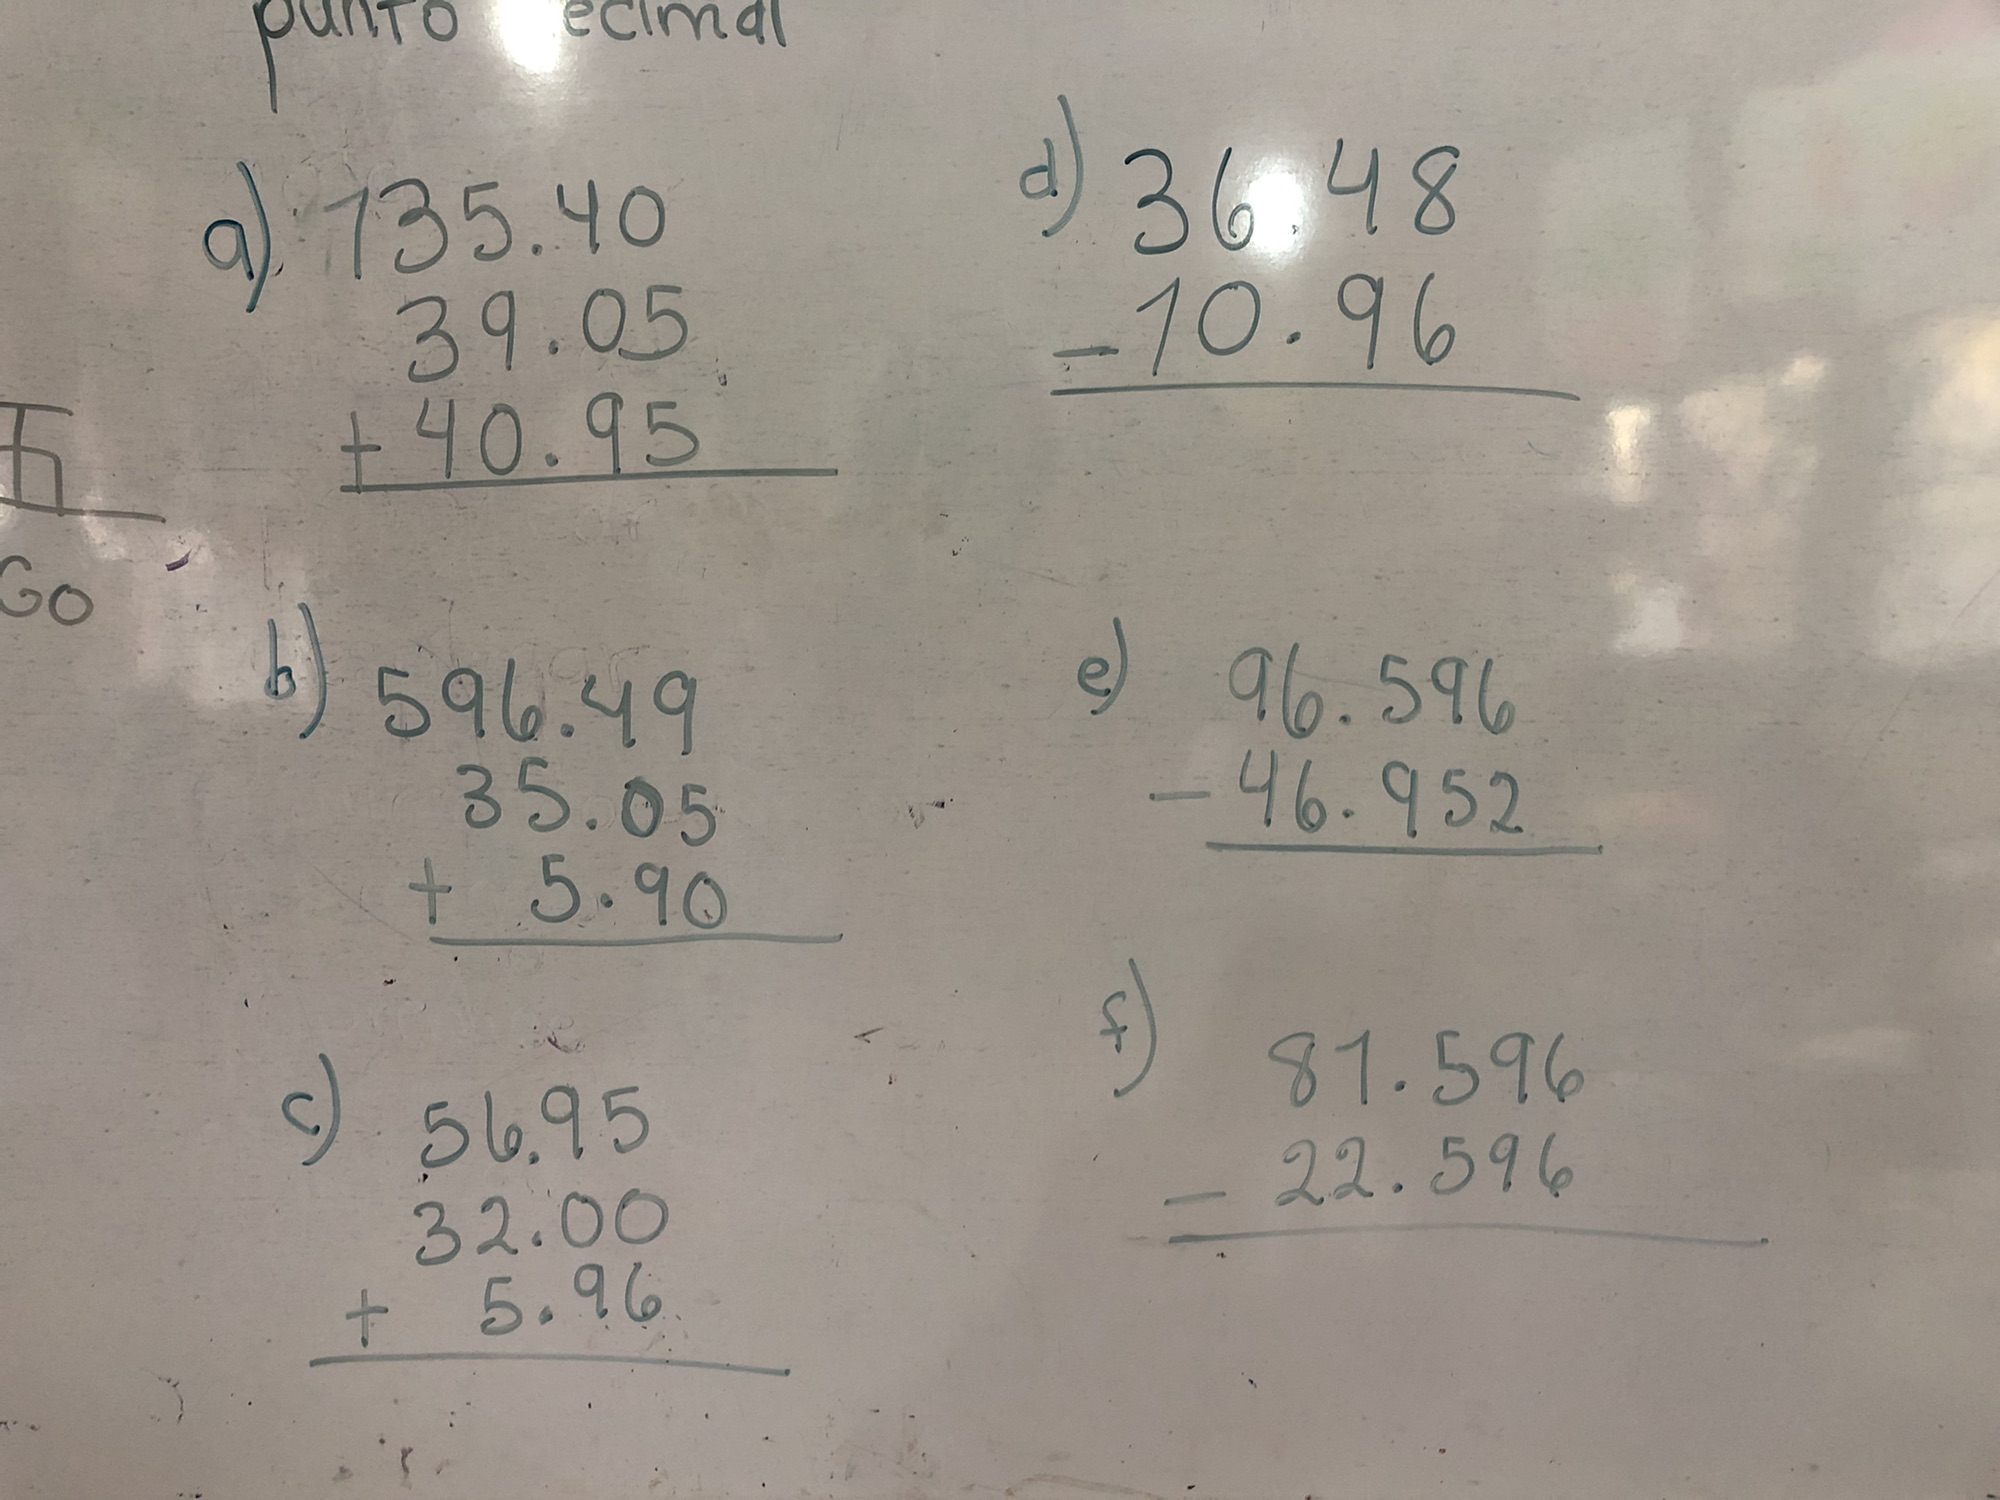 punto ecimal
a) 135.40
39.05
+ 40.95
b) 596.49
35.05
+ 5.90
c) 56.95
32.00
+ 5.96
d) 36.48
- 10.96
e) 96.596
- 46.952
f) 81.596
- 22.596
五
Go